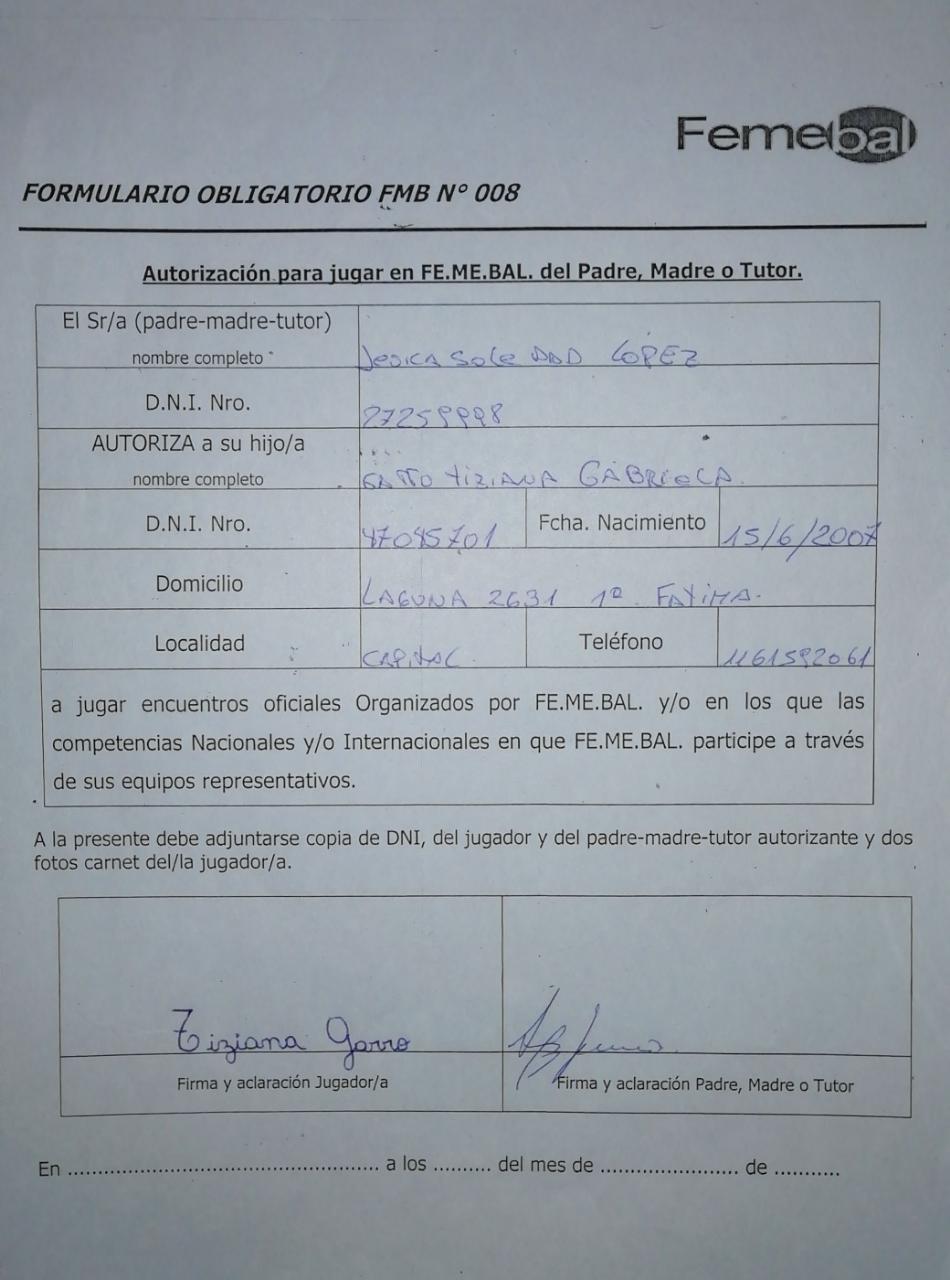 Femebal
FORMULARIO OBLIGATORIO FMB N° 008
Autorización para jugar en FE.ME.BAL. del Padre, Madre o Tutor.
El Sr/a (padre-madre-tutor)
nombre completo
Jesica Soledad LOPEZ
D.N.I. Nro.
27259998
AUTORIZA a su hijo/a
nombre completo
GARRO TIZIANA GABRIELA.
D.N.I. Nro.
47045701
Fcha. Nacimiento
15/6/2007
Domicilio
LAGUNA 2631 1º FATIMA.
Localidad
CAPITAL
Teléfono
1161592061
a jugar encuentros oficiales Organizados por FE.ME.BAL. y/o en los que las
competencias Nacionales y/o Internacionales en que FE.ME.BAL. participe a través
de sus equipos representativos.
A la presente debe adjuntarse copia de DNI, del jugador y del padre-madre-tutor autorizante y dos
fotos carnet del/la jugador/a.
Tiziana Garro
Firma y aclaración Jugador/a
Firma y aclaración Padre, Madre o Tutor
En ................................................ a los .......... del mes de ........................ de ...........